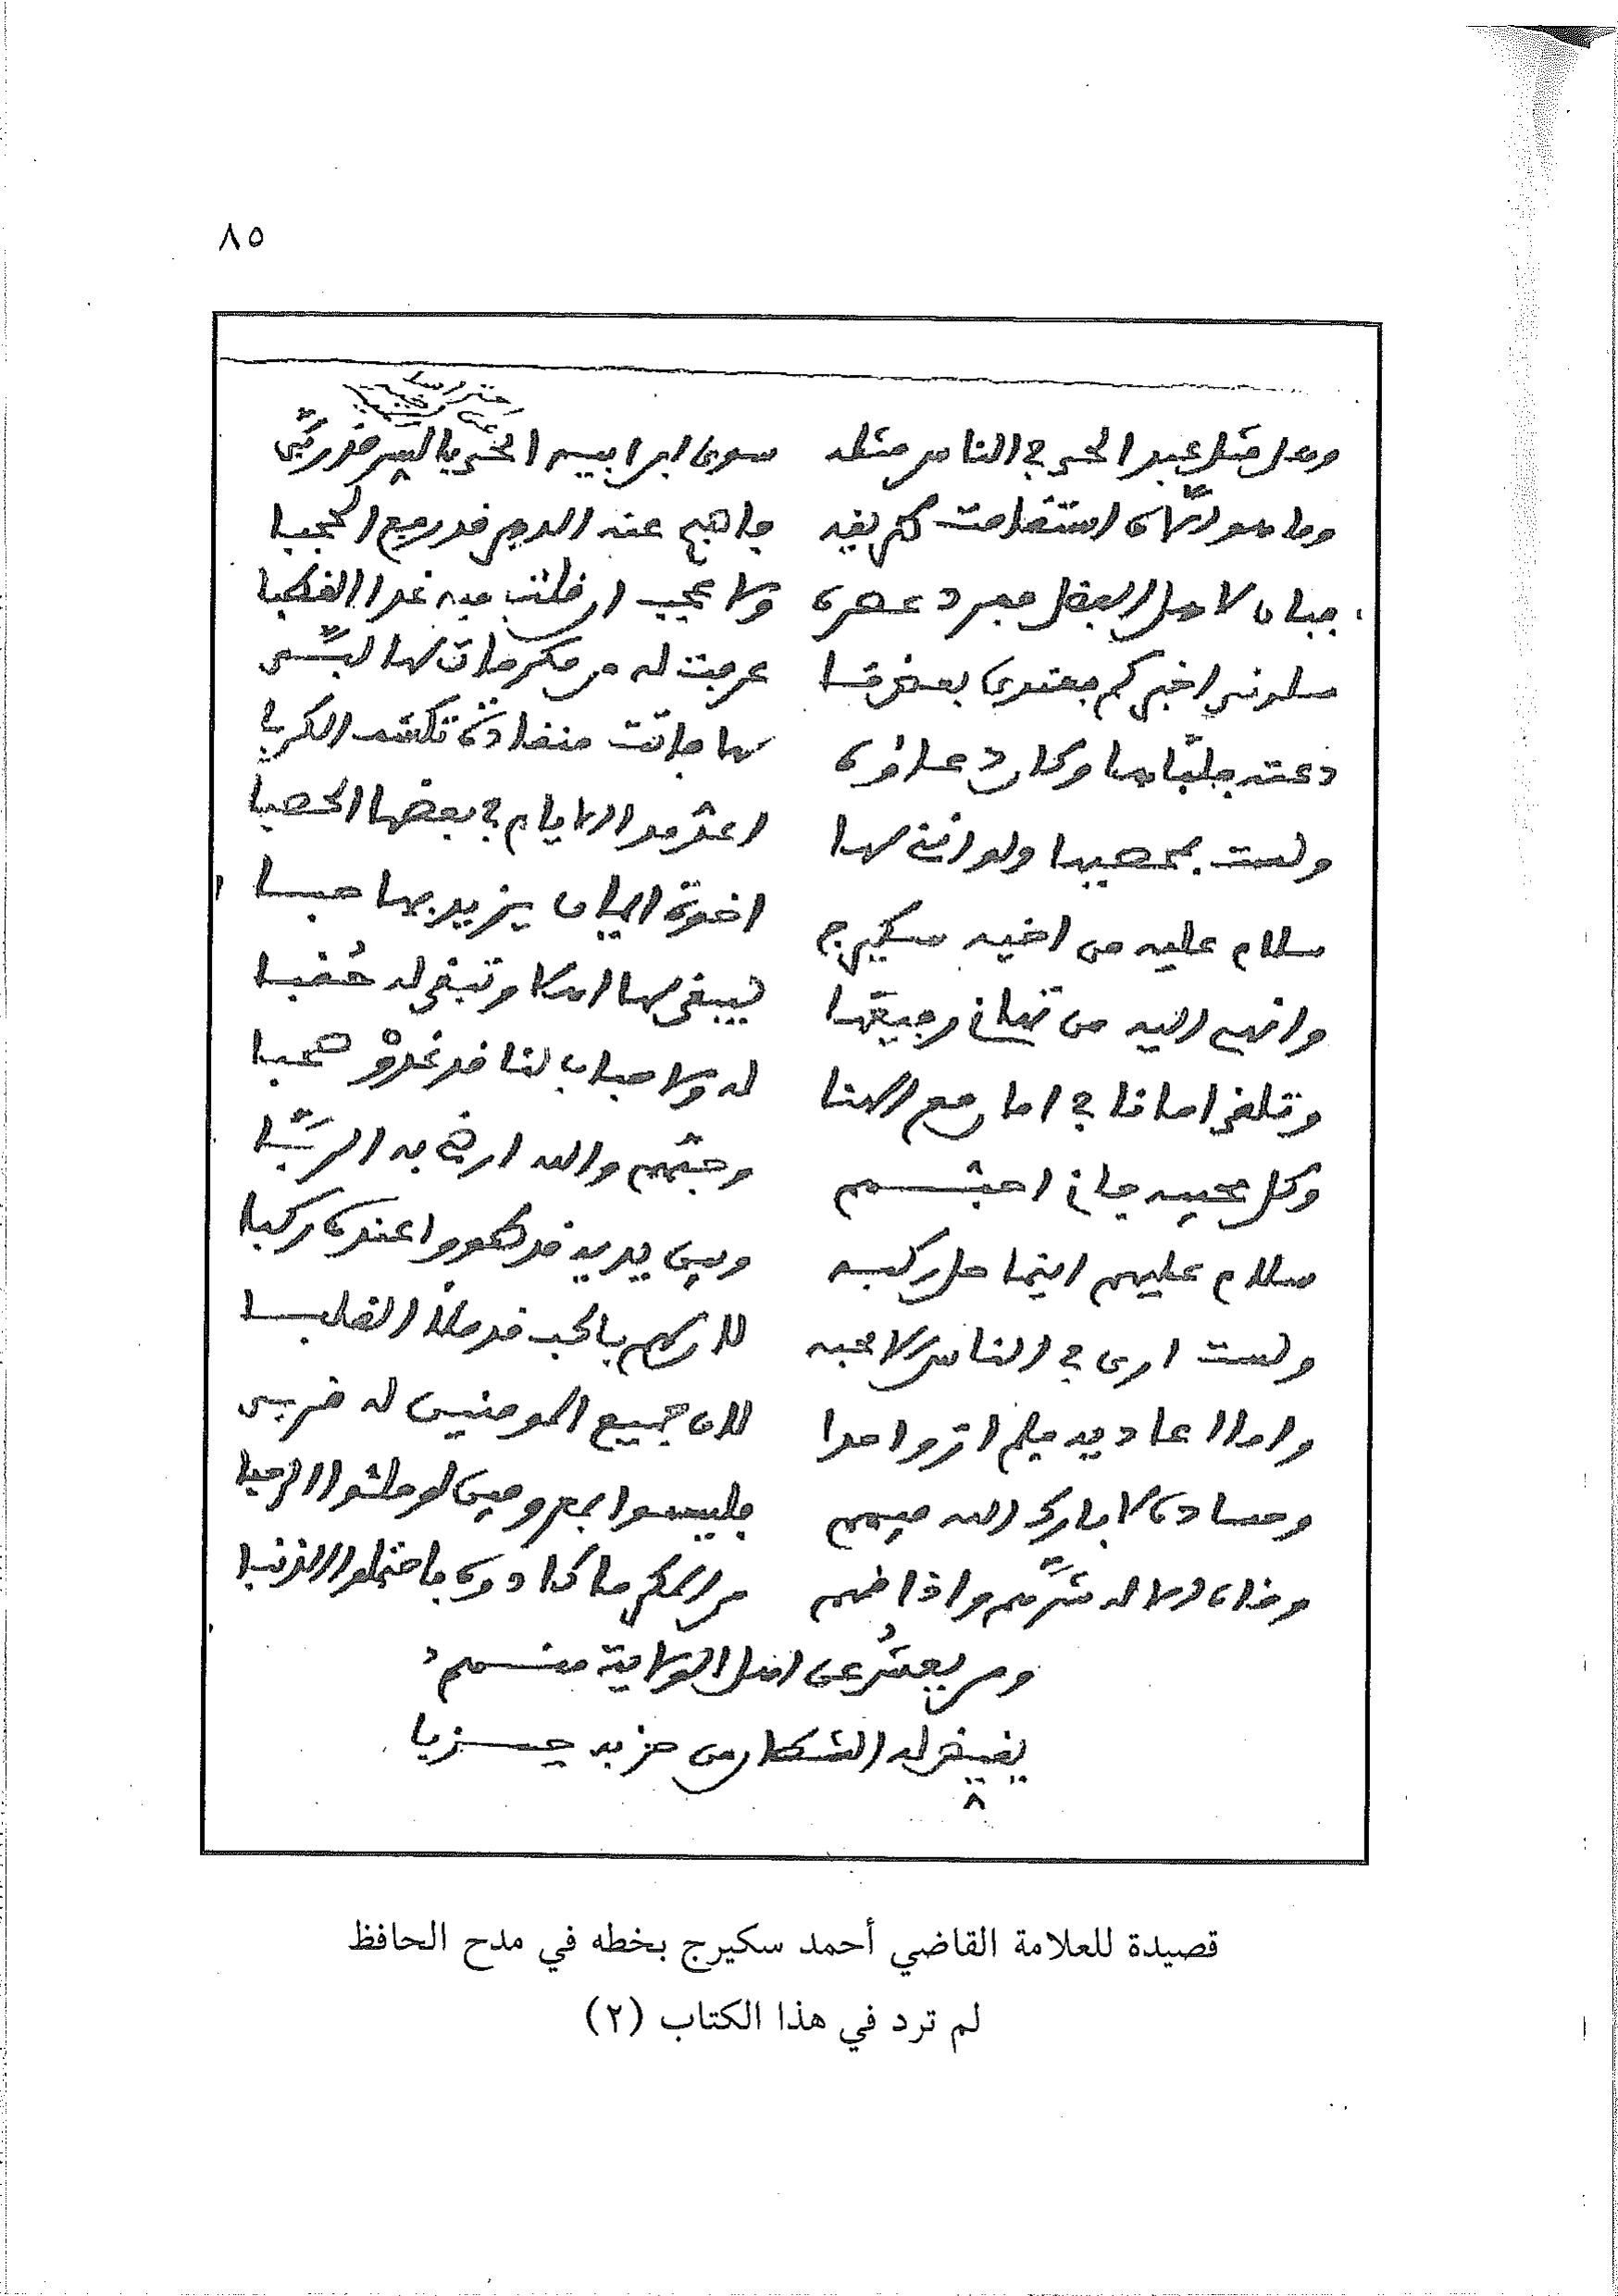 ٨٥
وهل مثل عبد الحي في الناس مثله سوى ابراهيم الحي بالسر قد ربى
وما هو الا ان استقامت طريقه فاهم عنه الدهر قد رفع الحجبا
فبان لاهل الفضل مفرد عصره ولا عجب ان قلت فيه غدا القطبا
سلوني اخبركم فعندي بعض ما عرفت له من مكرمات لها لبى
دعته فلباها وكان دعاؤه لها فاتت منقادة تكشف الكربا
ولست بمحصيها ولو انني لها اعد مدا الايام في بعضها الحصبا
سلام عليه من اخيه سكيرج اخوة ايمان يزيد بها حبا
وانهي اليه من تهاني رفيعها ليبقى لها اهلا وتبقى له حقبا
وتلقى امانا في امان مع الهنا له ولاحباب لنا قد غدوا صحبا
وكل محبيه فاني احبهم وحبهم والله ارضي به الربا
سلام عليهم اينما حل ركبه وبين يديه قد طووا عنده ركبا
ولست ارى في الناس الا محبه لان لهم بالحب قد ملأ القلبا
واما اعاديه فلم ار واحدا لان جميع المومنين له قربى
وحساده لا بارك الله فيهم فليسوا بمعروفين لو ملئوا الرحبا
وقان الاله شرهم واذاهم من المكر ما كادوه فاحتملوا الذنبا
ومن يعش عن اهل الولاية منهم
يقيض له الشيطان من حزبه حزبا
٨
قصيدة للعلامة القاضي أحمد سكيرج بخطه في مدح الحافظ
لم ترد في هذا الكتاب (٢)